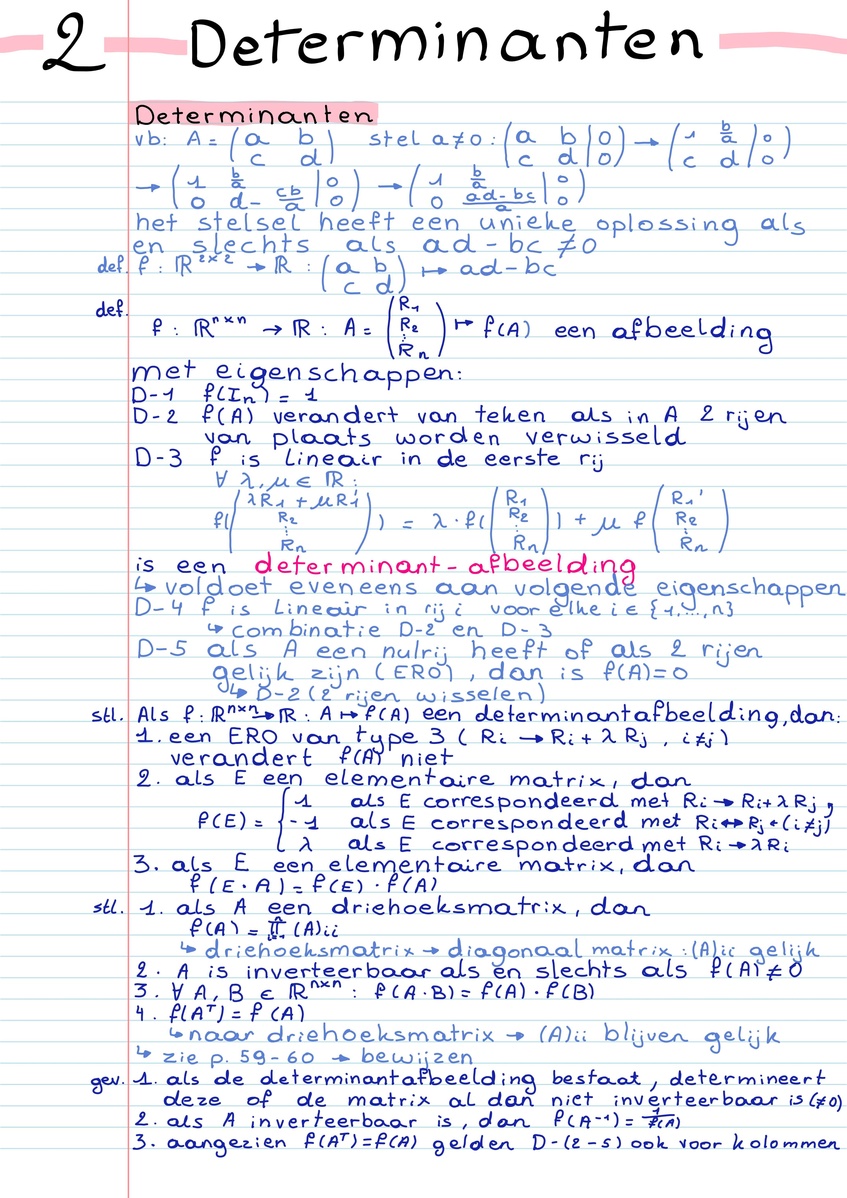 2 Determinanten
Determinanten
vb: A = (a b; c d) stel a≠0: (a b | 0; c d | 0) → (1 b/a | 0; c d | 0)
→ (1 b/a | 0; 0 d - cb/a | 0) → (1 b/a | 0; 0 (ad-bc)/a | 0)
het stelsel heeft een unieke oplossing als
en slechts als ad-bc ≠0
def. f: ℝ²ˣ² → ℝ : (a b; c d) ↦ ad-bc
def.
f: ℝⁿˣⁿ → ℝ : A = (R₁; R₂; ⋮; Rₙ) ↦ f(A) een afbeelding
met eigenschappen:
D-1 f(Iₙ) = 1
D-2 f(A) verandert van teken als in A 2 rijen
van plaats worden verwisseld
D-3 f is lineair in de eerste rij
∀ λ, μ ∈ ℝ :
f((λR₁ + μR₁'; R₂; ⋮; Rₙ)) = λ·f((R₁; R₂; ⋮; Rₙ)) + μ f(R₁'; R₂; ⋮; Rₙ)
is een determinant-afbeelding
↳ voldoet eveneens aan volgende eigenschappen
D-4 f is lineair in rij i voor elke i ∈ {1,...,n}
↳ combinatie D-2 en D-3
D-5 als A een nulrij heeft of als 2 rijen
gelijk zijn (ERO), dan is f(A)=0
↳ D-2 (2 rijen wisselen)
stl. Als f: ℝⁿˣⁿ→ℝ : A ↦ f(A) een determinantafbeelding, dan:
1. een ERO van type 3 (Ri → Ri + λRj, i≠j)
verandert f(A) niet
2. als E een elementaire matrix, dan
f(E) = { 1 als E correspondeerd met Ri → Ri+λRj,
-1 als E correspondeerd met Ri ↔ Rj (i≠j)
λ als E correspondeerd met Ri → λRi
3. als E een elementaire matrix, dan
f(E·A) = f(E)·f(A)
stl. 1. als A een driehoeksmatrix, dan
f(A) = ∏ (A)ii
↳ driehoeksmatrix → diagonaal matrix : (A)ii gelijk
2. A is inverteerbaar als en slechts als f(A) ≠ 0
3. ∀ A, B ∈ ℝⁿˣⁿ : f(A·B) = f(A)·f(B)
4. f(Aᵀ) = f(A)
↳ naar driehoeksmatrix → (A)ii blijven gelijk
↳ zie p. 59-60 → bewijzen
gev. 1. als de determinantafbeelding bestaat, determineert
deze of de matrix al dan niet inverteerbaar is (≠0)
2. als A inverteerbaar is, dan f(A⁻¹) = 1/f(A)
3. aangezien f(Aᵀ)=f(A) gelden D-(2-5) ook voor kolommen